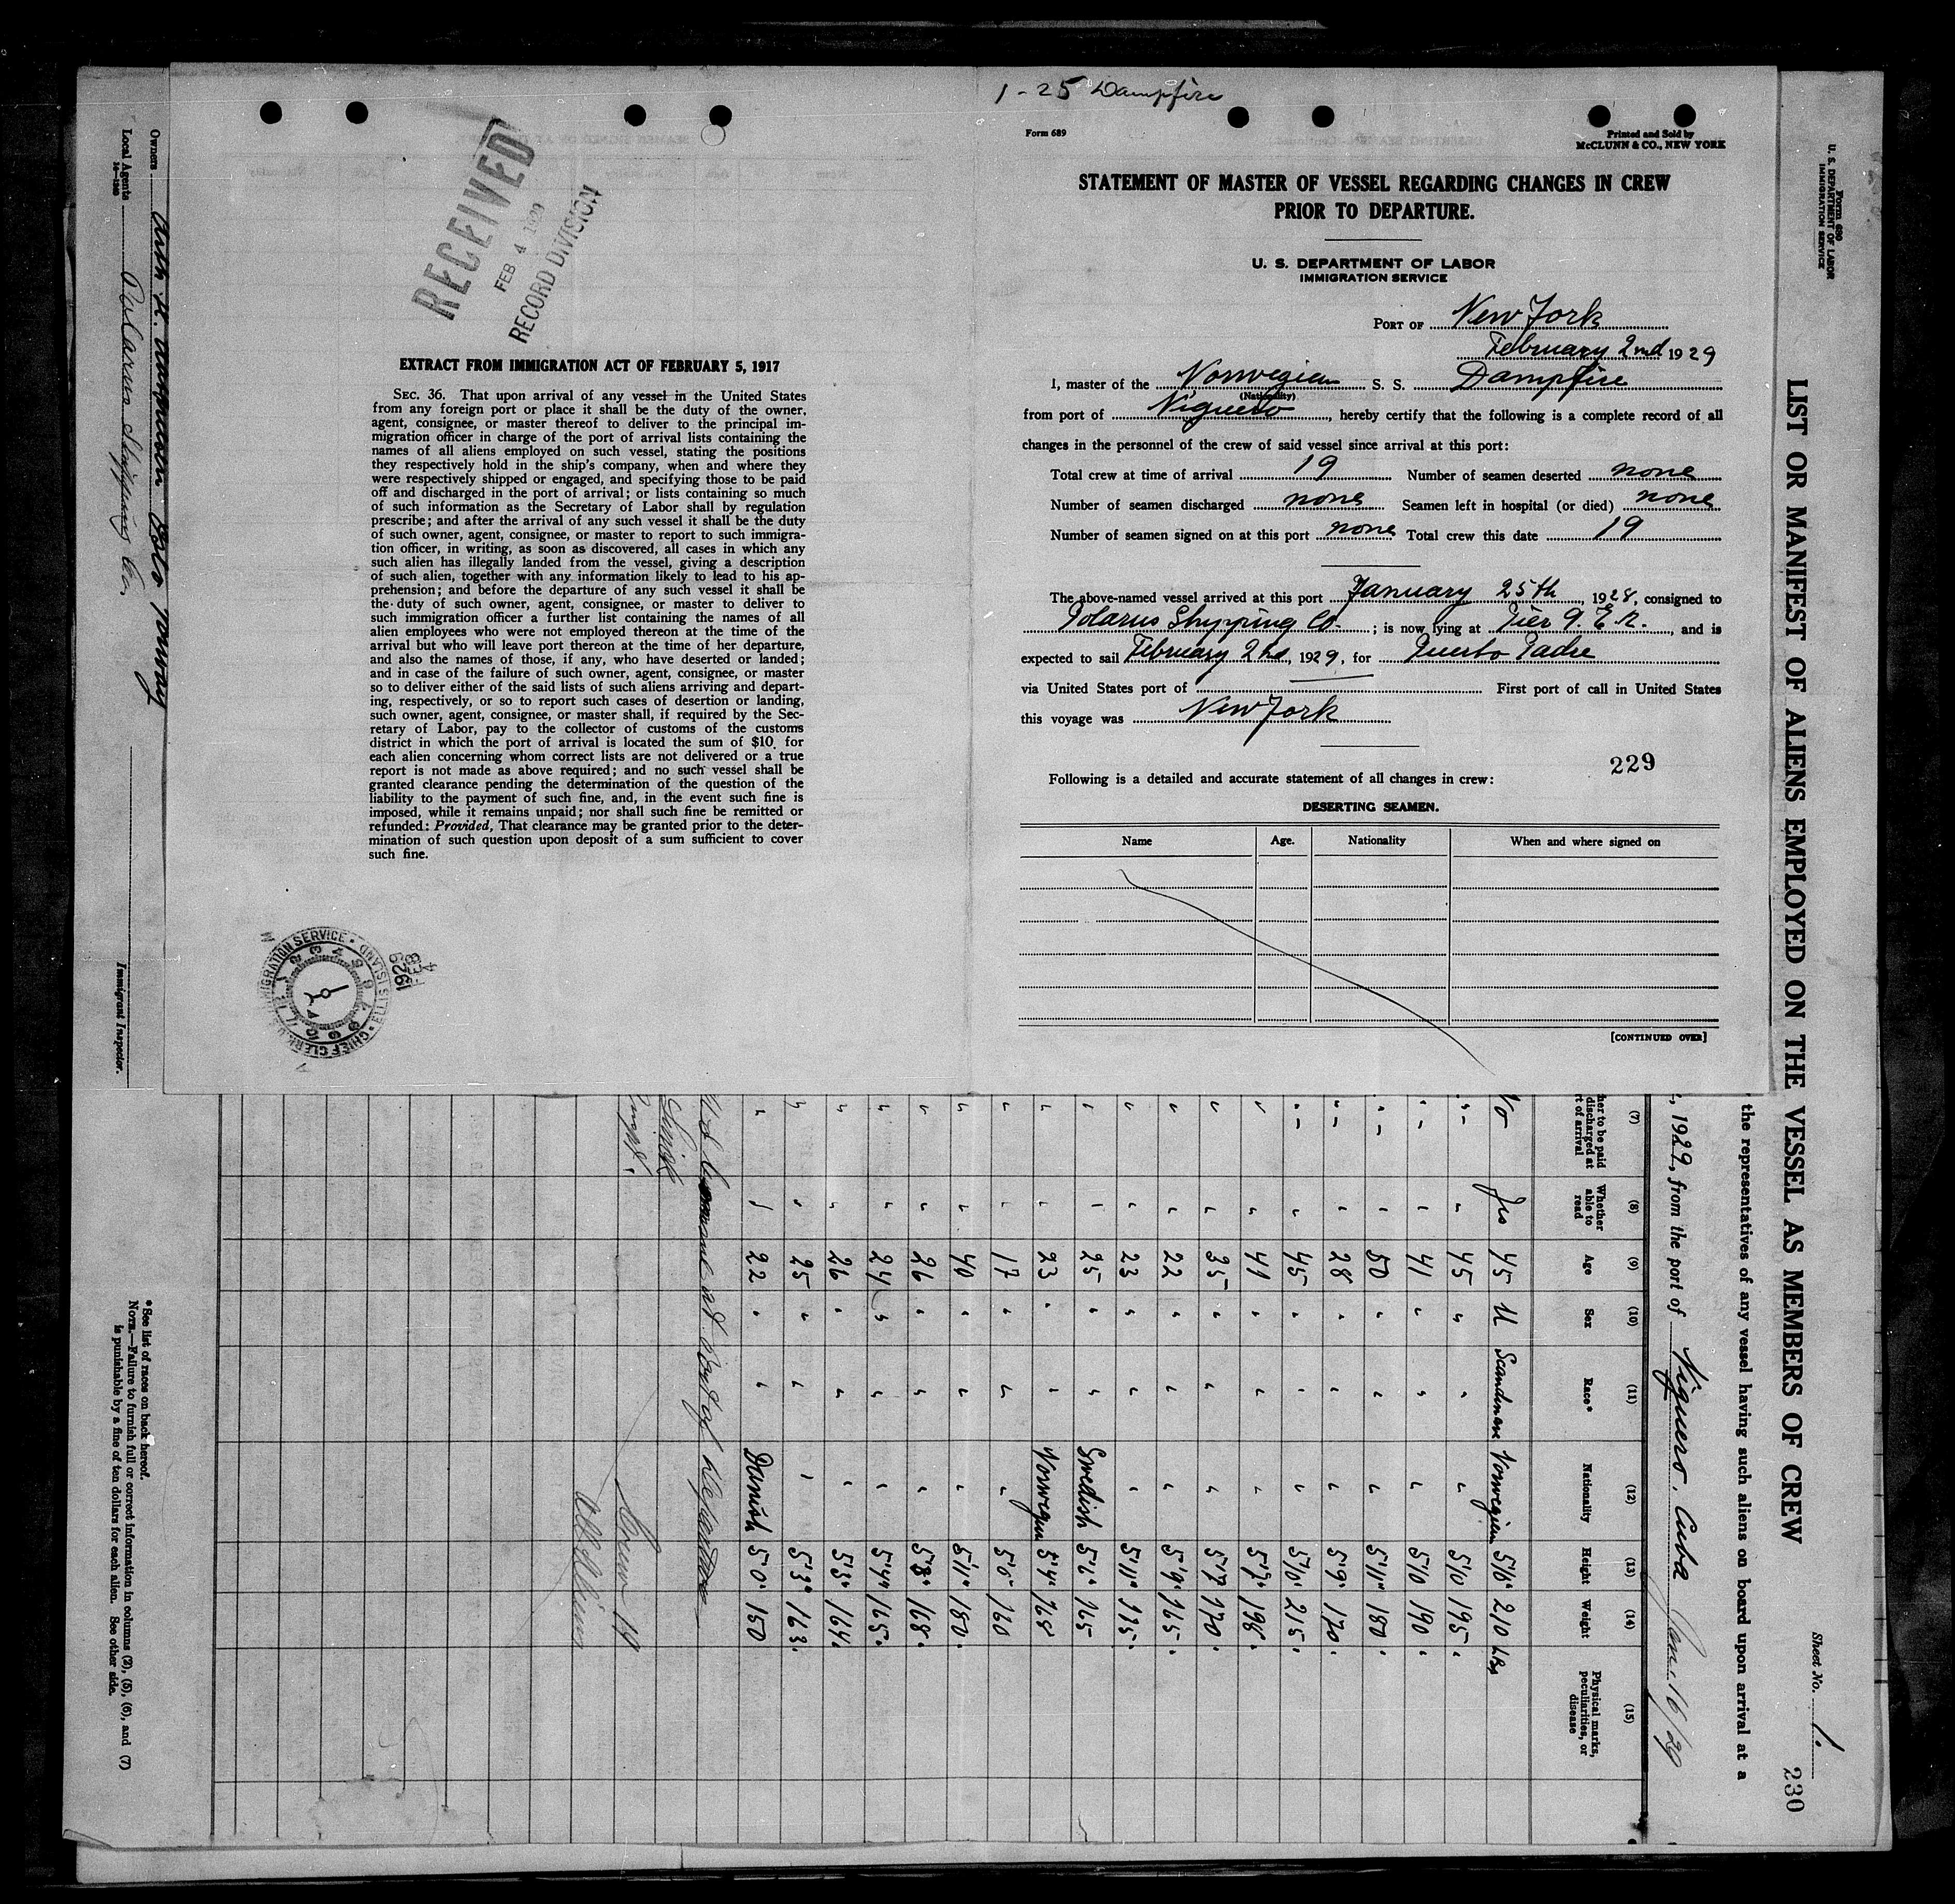 1-25 Dampfire
Form 689
Printed and Sold by
McCLUNN & CO., NEW YORK
STATEMENT OF MASTER OF VESSEL REGARDING CHANGES IN CREW
PRIOR TO DEPARTURE.
U. S. DEPARTMENT OF LABOR
IMMIGRATION SERVICE
PORT OF New York
February 2nd 1929
I, master of the Norwegian S. S. Dampfire
(Nationality)
from port of Niguero, hereby certify that the following is a complete record of all
changes in the personnel of the crew of said vessel since arrival at this port:
Total crew at time of arrival 19 Number of seamen deserted none
Number of seamen discharged none Seamen left in hospital (or died) none
Number of seamen signed on at this port none Total crew this date 19
The above-named vessel arrived at this port January 25th, 1928, consigned to
Polarus Shipping Co.; is now lying at Pier 9. E.R., and is
expected to sail February 2nd, 1929, for Puerto Padre
via United States port of First port of call in United States
this voyage was New York
229
Following is a detailed and accurate statement of all changes in crew:
DESERTING SEAMEN.
Name Age. Nationality When and where signed on
[CONTINUED OVER]
RECEIVED
FEB 4 1929
RECORD DIVISION
EXTRACT FROM IMMIGRATION ACT OF FEBRUARY 5, 1917
SEC. 36. That upon arrival of any vessel in the United States
from any foreign port or place it shall be the duty of the owner,
agent, consignee, or master thereof to deliver to the principal im-
migration officer in charge of the port of arrival lists containing the
names of all aliens employed on such vessel, stating the positions
they respectively hold in the ship's company, when and where they
were respectively shipped or engaged, and specifying those to be paid
off and discharged in the port of arrival; or lists containing so much
of such information as the Secretary of Labor shall by regulation
prescribe; and after the arrival of any such vessel it shall be the duty
of such owner, agent, consignee, or master to report to such immigra-
tion officer, in writing, as soon as discovered, all cases in which any
such alien has illegally landed from the vessel, giving a description
of such alien, together with any information likely to lead to his ap-
prehension; and before the departure of any such vessel it shall be
the duty of such owner, agent, consignee, or master to deliver to
such immigration officer a further list containing the names of all
alien employees who were not employed thereon at the time of the
arrival but who will leave port thereon at the time of her departure,
and also the names of those, if any, who have deserted or landed;
and in case of the failure of such owner, agent, consignee, or master
so to deliver either of the said lists of such aliens arriving and depart-
ing, respectively, or so to report such cases of desertion or landing,
such owner, agent, consignee, or master shall, if required by the Sec-
retary of Labor, pay to the collector of customs of the customs
district in which the port of arrival is located the sum of $10 for
each alien concerning whom correct lists are not delivered or a true
report is not made as above required; and no such vessel shall be
granted clearance pending the determination of the question of the
liability to the payment of such fine, and, in the event such fine is
imposed, while it remains unpaid; nor shall such fine be remitted or
refunded: Provided, That clearance may be granted prior to the deter-
mination of such question upon deposit of a sum sufficient to cover
such fine.
IMMIGRATION SERVICE · ELLIS ISLAND
CHIEF CLERK
1929
FEB
4
Form 680
U. S. DEPARTMENT OF LABOR
IMMIGRATION SERVICE
Sheet No. 1.
LIST OR MANIFEST OF ALIENS EMPLOYED ON THE VESSEL AS MEMBERS OF CREW
230
the representatives of any vessel having such aliens on board upon arrival at a
, 1929, from the port of Niguero, Cuba Jan. 16/29
(7) (8) (9) (10) (11) (12) (13) (14) (15)
her to be paid
discharged at
rt of arrival
Whether
able to
read
Age
Sex
Race*
Nationality
Height
Weight
Physical marks,
peculiarities, or
disease
No Yes 45 M Scandinav Norwegian 5'10" 210 Lbs
" " 45 " " " 5'10 195 "
" " 41 " " " 5'10 190 "
" " 50 " " " 5'11" 180 "
" " 28 " " " 5'9" 170 "
" " 45 " " " 5'10" 215 "
" " 49 " " " 5'7" 198 "
" " 35 " " " 5'7 170 "
" " 22 " " " 5'9" 165 "
" " 23 " " " 5'11" 135 "
" " 25 " " Swedish 5'6" 165
" " 23 " " Norwegian 5'4" 168
" " 17 " " " 5'6" 160
" " 40 " " " 5'11" 180 "
" " 26 " " " 5'8" 168 "
" " 24 " " " 5'4" 165 "
" " 26 " " " 5'3" 164
" " 25 " " " 5'3" 163
" " 22 " " Danish 5'0" 150
Crew 19
Owners Norway
Local Agents Polarus Shipping Co.
Immigrant Inspector.
*See list of races on back hereof.
NOTE.—Failure to furnish full or correct information in columns (2), (5), (6), and (7)
is punishable by a fine of ten dollars for each alien. See other side.